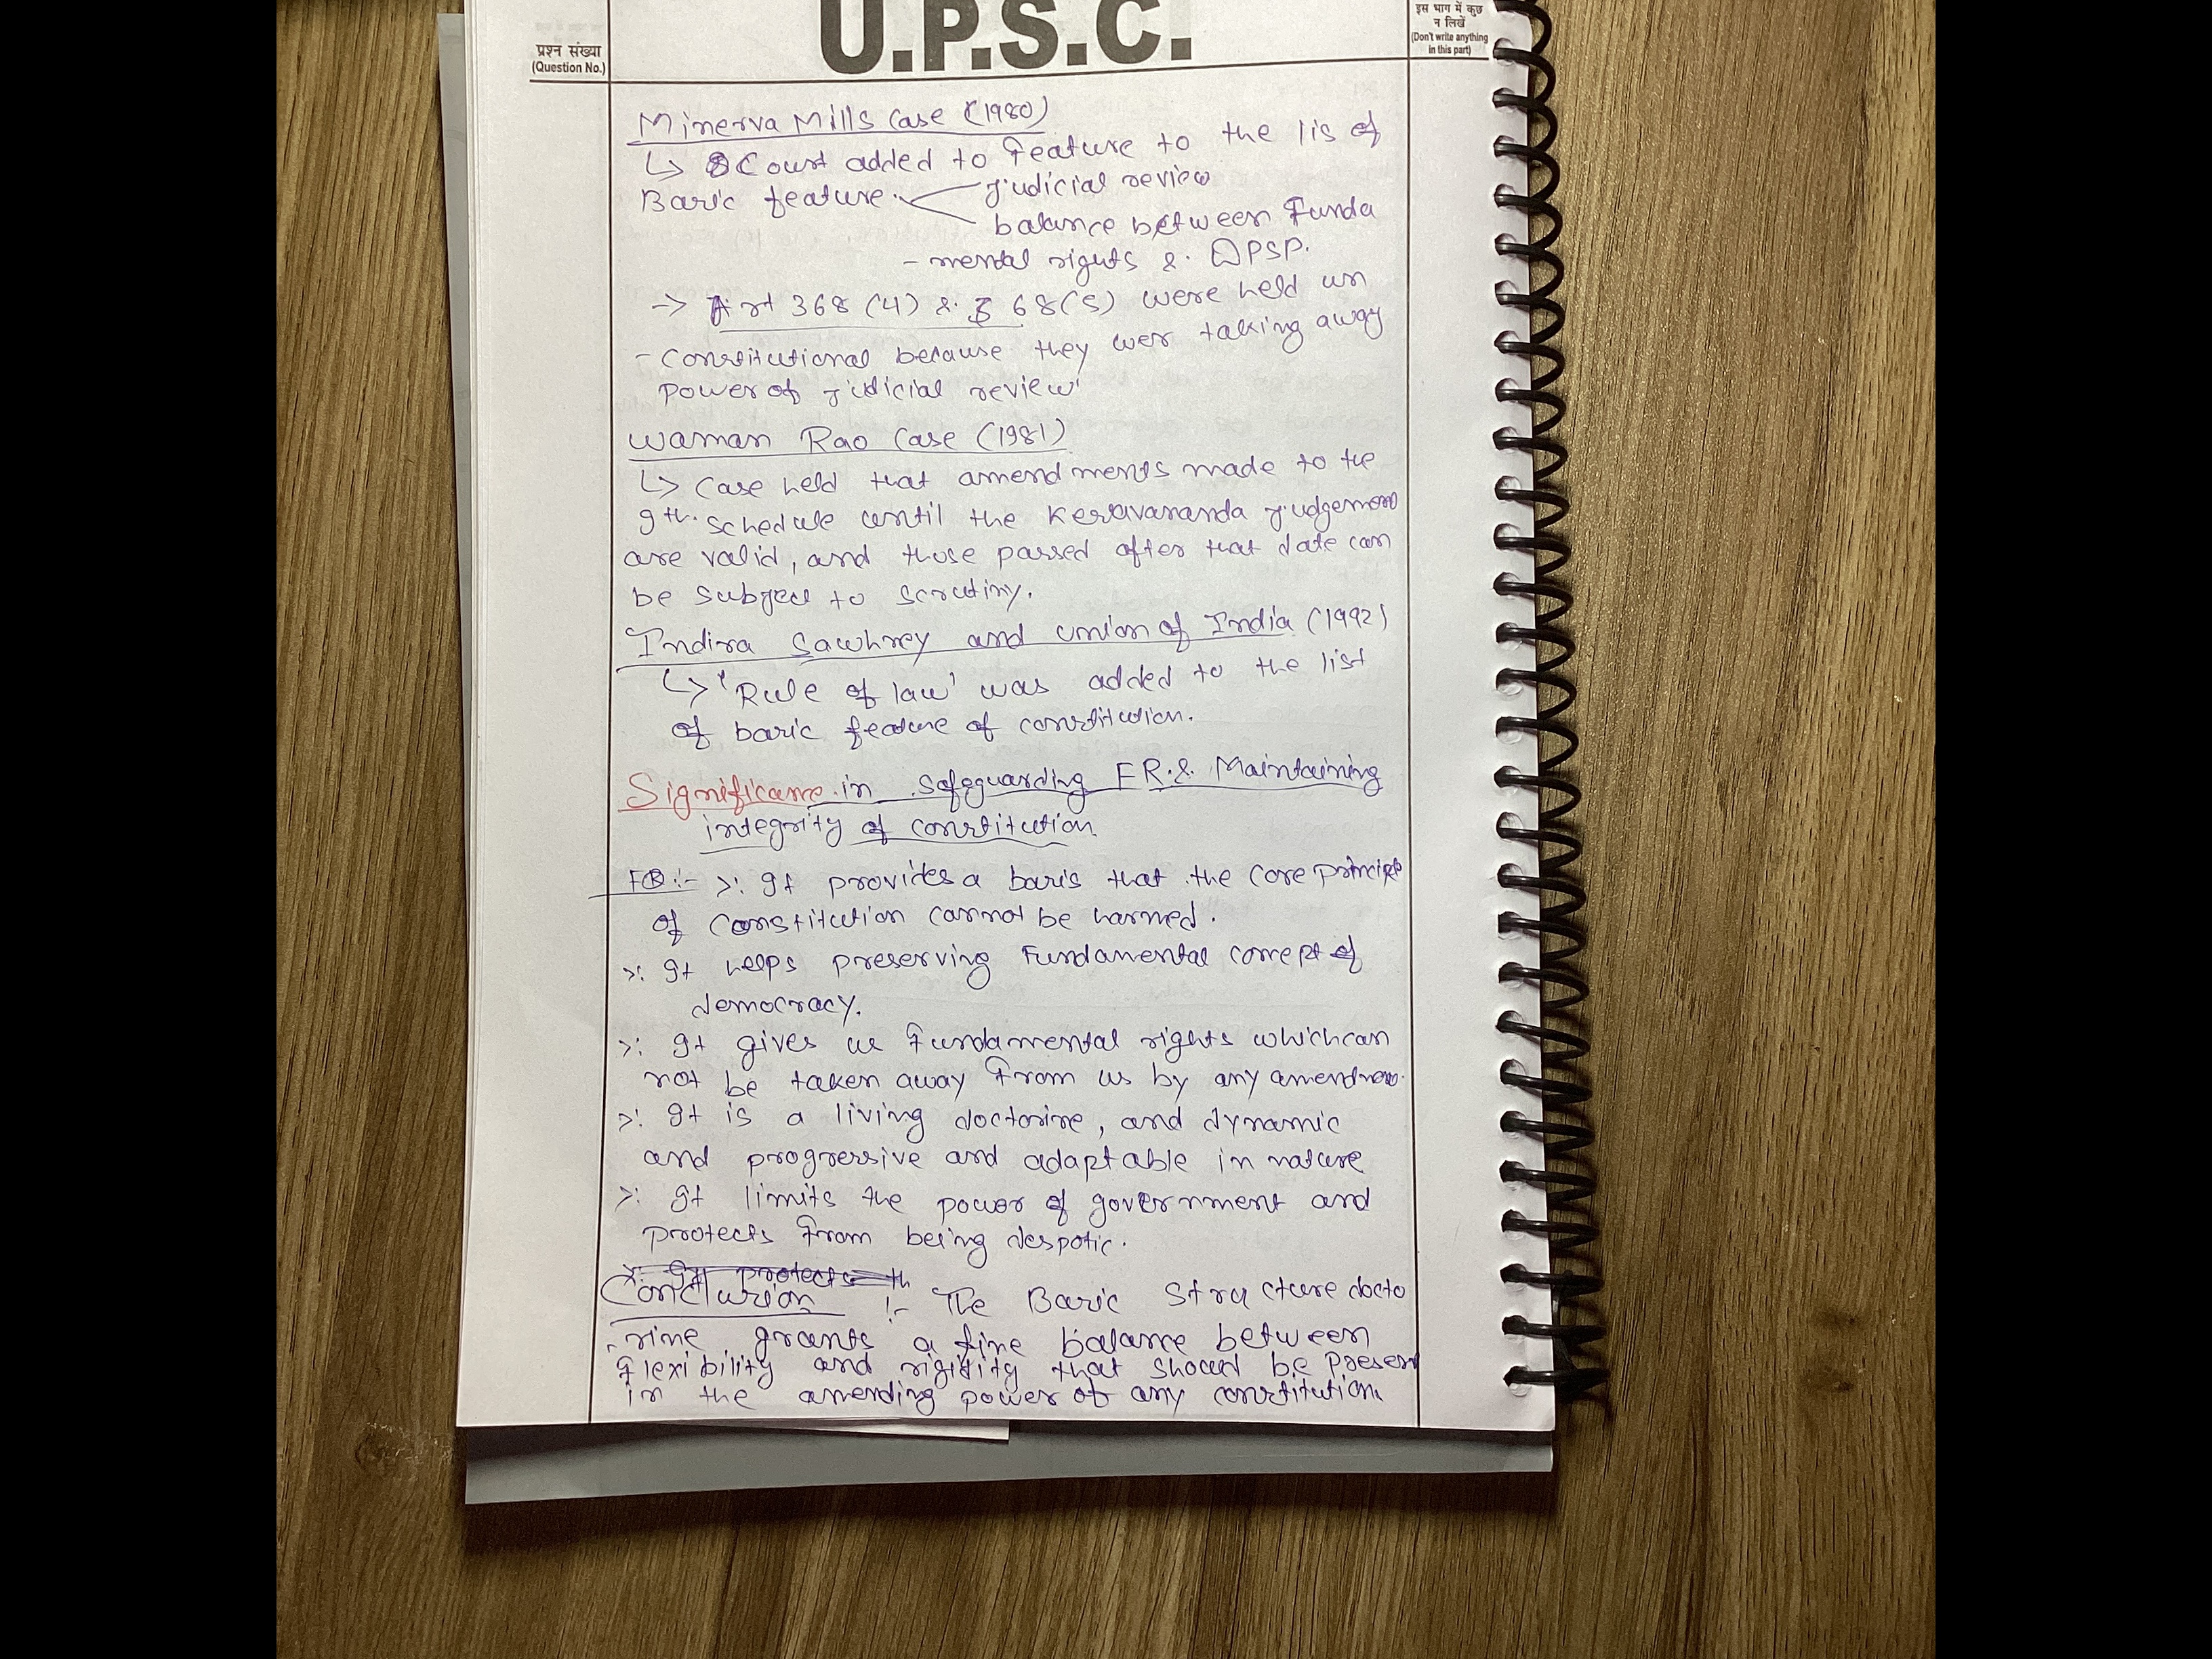 U.P.S.C.
प्रश्न संख्या
(Question No.)
इस भाग में कुछ
न लिखें
(Don't write anything
in this part)
Minerva Mills Case (1980)
↳ Court added to feature to the lis of
Basic feature. judicial review
balance between Funda
- mental rights & DPSP.
→ Art 368 (4) & 368(5) were held un
- constitutional because they wer taking away
power of judicial review'
Waman Rao Case (1981)
↳ Case held that amendments made to the
9th. schedule until the Kesavananda judgement
are valid, and those passed after that date can
be subject to scrutiny.
Indira Sawhney and union of India (1992)
↳ 'Rule of law' was added to the list
of basic feature of constitution.
Significance in safeguarding FR & Maintaining
integrity of constitution
FR :- >: It provides a basis that the core principle
of constitution cannot be harmed.
>: It helps preserving Fundamental concept of
democracy.
>: It gives us fundamental rights which can
not be taken away from us by any amendment.
>: It is a living doctorine, and dynamic
and progressive and adaptable in nature
>: It limits the power of government and
protects from being despotic.
>: It protects th
Conclusion :- The Basic Structure docto
- rine grants a fine balance between
flexibility and rigidity that should be present
in the amending power of any constitution.